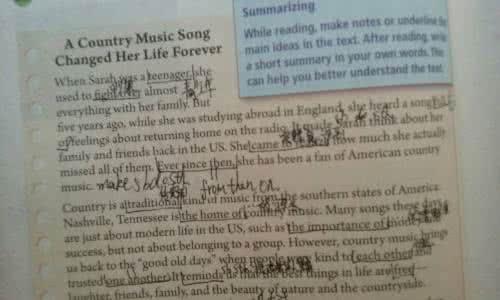 Summarizing
While reading, make notes or underline
main ideas in the text. After reading,
a short summary in your own words. This
can help you better understand the text.
A Country Music Song
Changed Her Life Forever
When Sarah was a teenager, she
used to fight over almost
everything with her family. But
five years ago, while she was studying abroad in England, she heard a song full
of feelings about returning home on the radio. It made Sarah think about her
family and friends back in the US. She came to how much she actually
missed all of them. Ever since then, she has been a fan of American country
music. from then on
Country is a traditional kind of music from the southern states of America
Nashville, Tennessee is the home of country music. Many songs these days
are just about modern life in the US, such as the importance of money
success, but not about belonging to a group. However, country music brings
us back to the "good old days" when people were kind to each other and
trusted one another. It reminds us that the best things in life are free
laughter, friends, family, and the beauty of nature and the countryside.